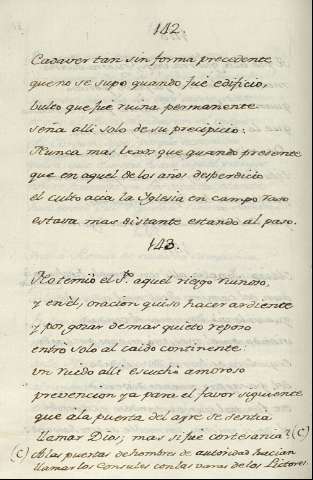 142.
Cadaver tan sin forma precedente
que no se supo quando fué edificio,
bulto que fué ruina permanente
seña alli solo de su precipicio:
Nunca mas lexos que quando presente
que en aquel de los años desperdicio
el culto acia la Yglesia en campo raso
estava mas distante estando al paso.
143.
No temió el Sto. aquel riesgo ruinoso,
y en él, oracion quiso hacer ardiente
y por gozar de mas quieto reposo
entró solo al caido continente:
un ruido alli escuchó amoroso
prevencion ya para el favor siguiente
que á la puerta del ayre se sentia
llamar Dios; mas si fué cortesania? (C)
(C) A las puertas de hombres de autoridad hacian
llamar los Consules con las varas de los Lictores.